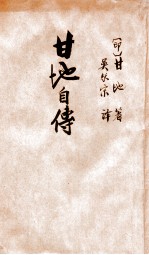 [印]甘地 著
吴耀宗 译
甘地自傳